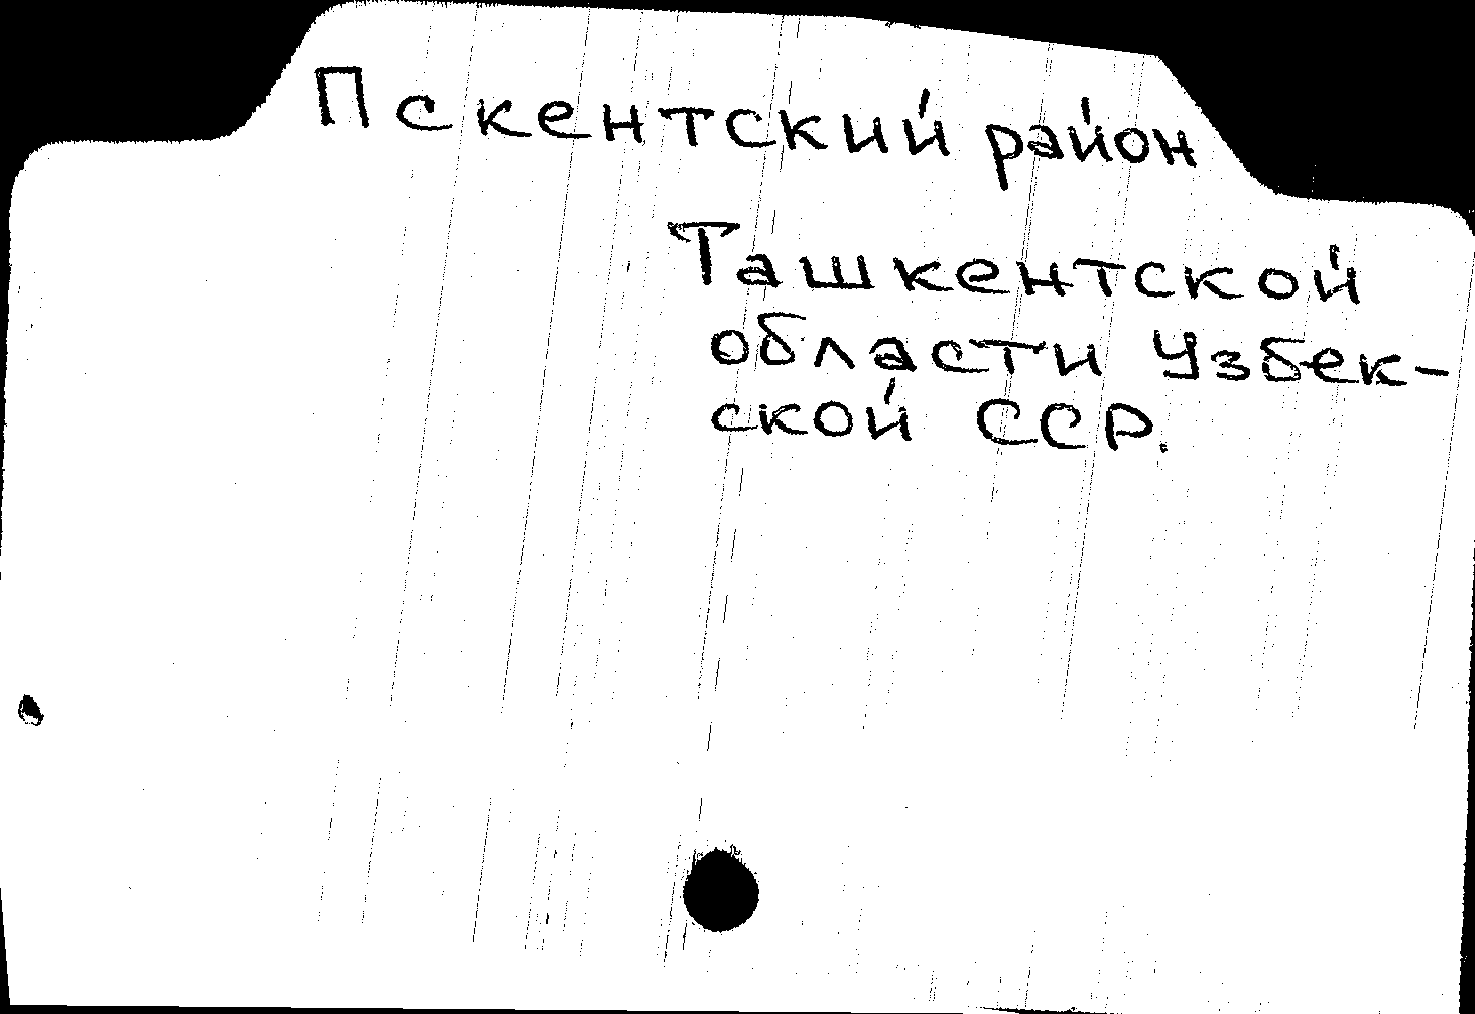 Пскентский район
Ташкентской
области Узбек-
ской ССР.